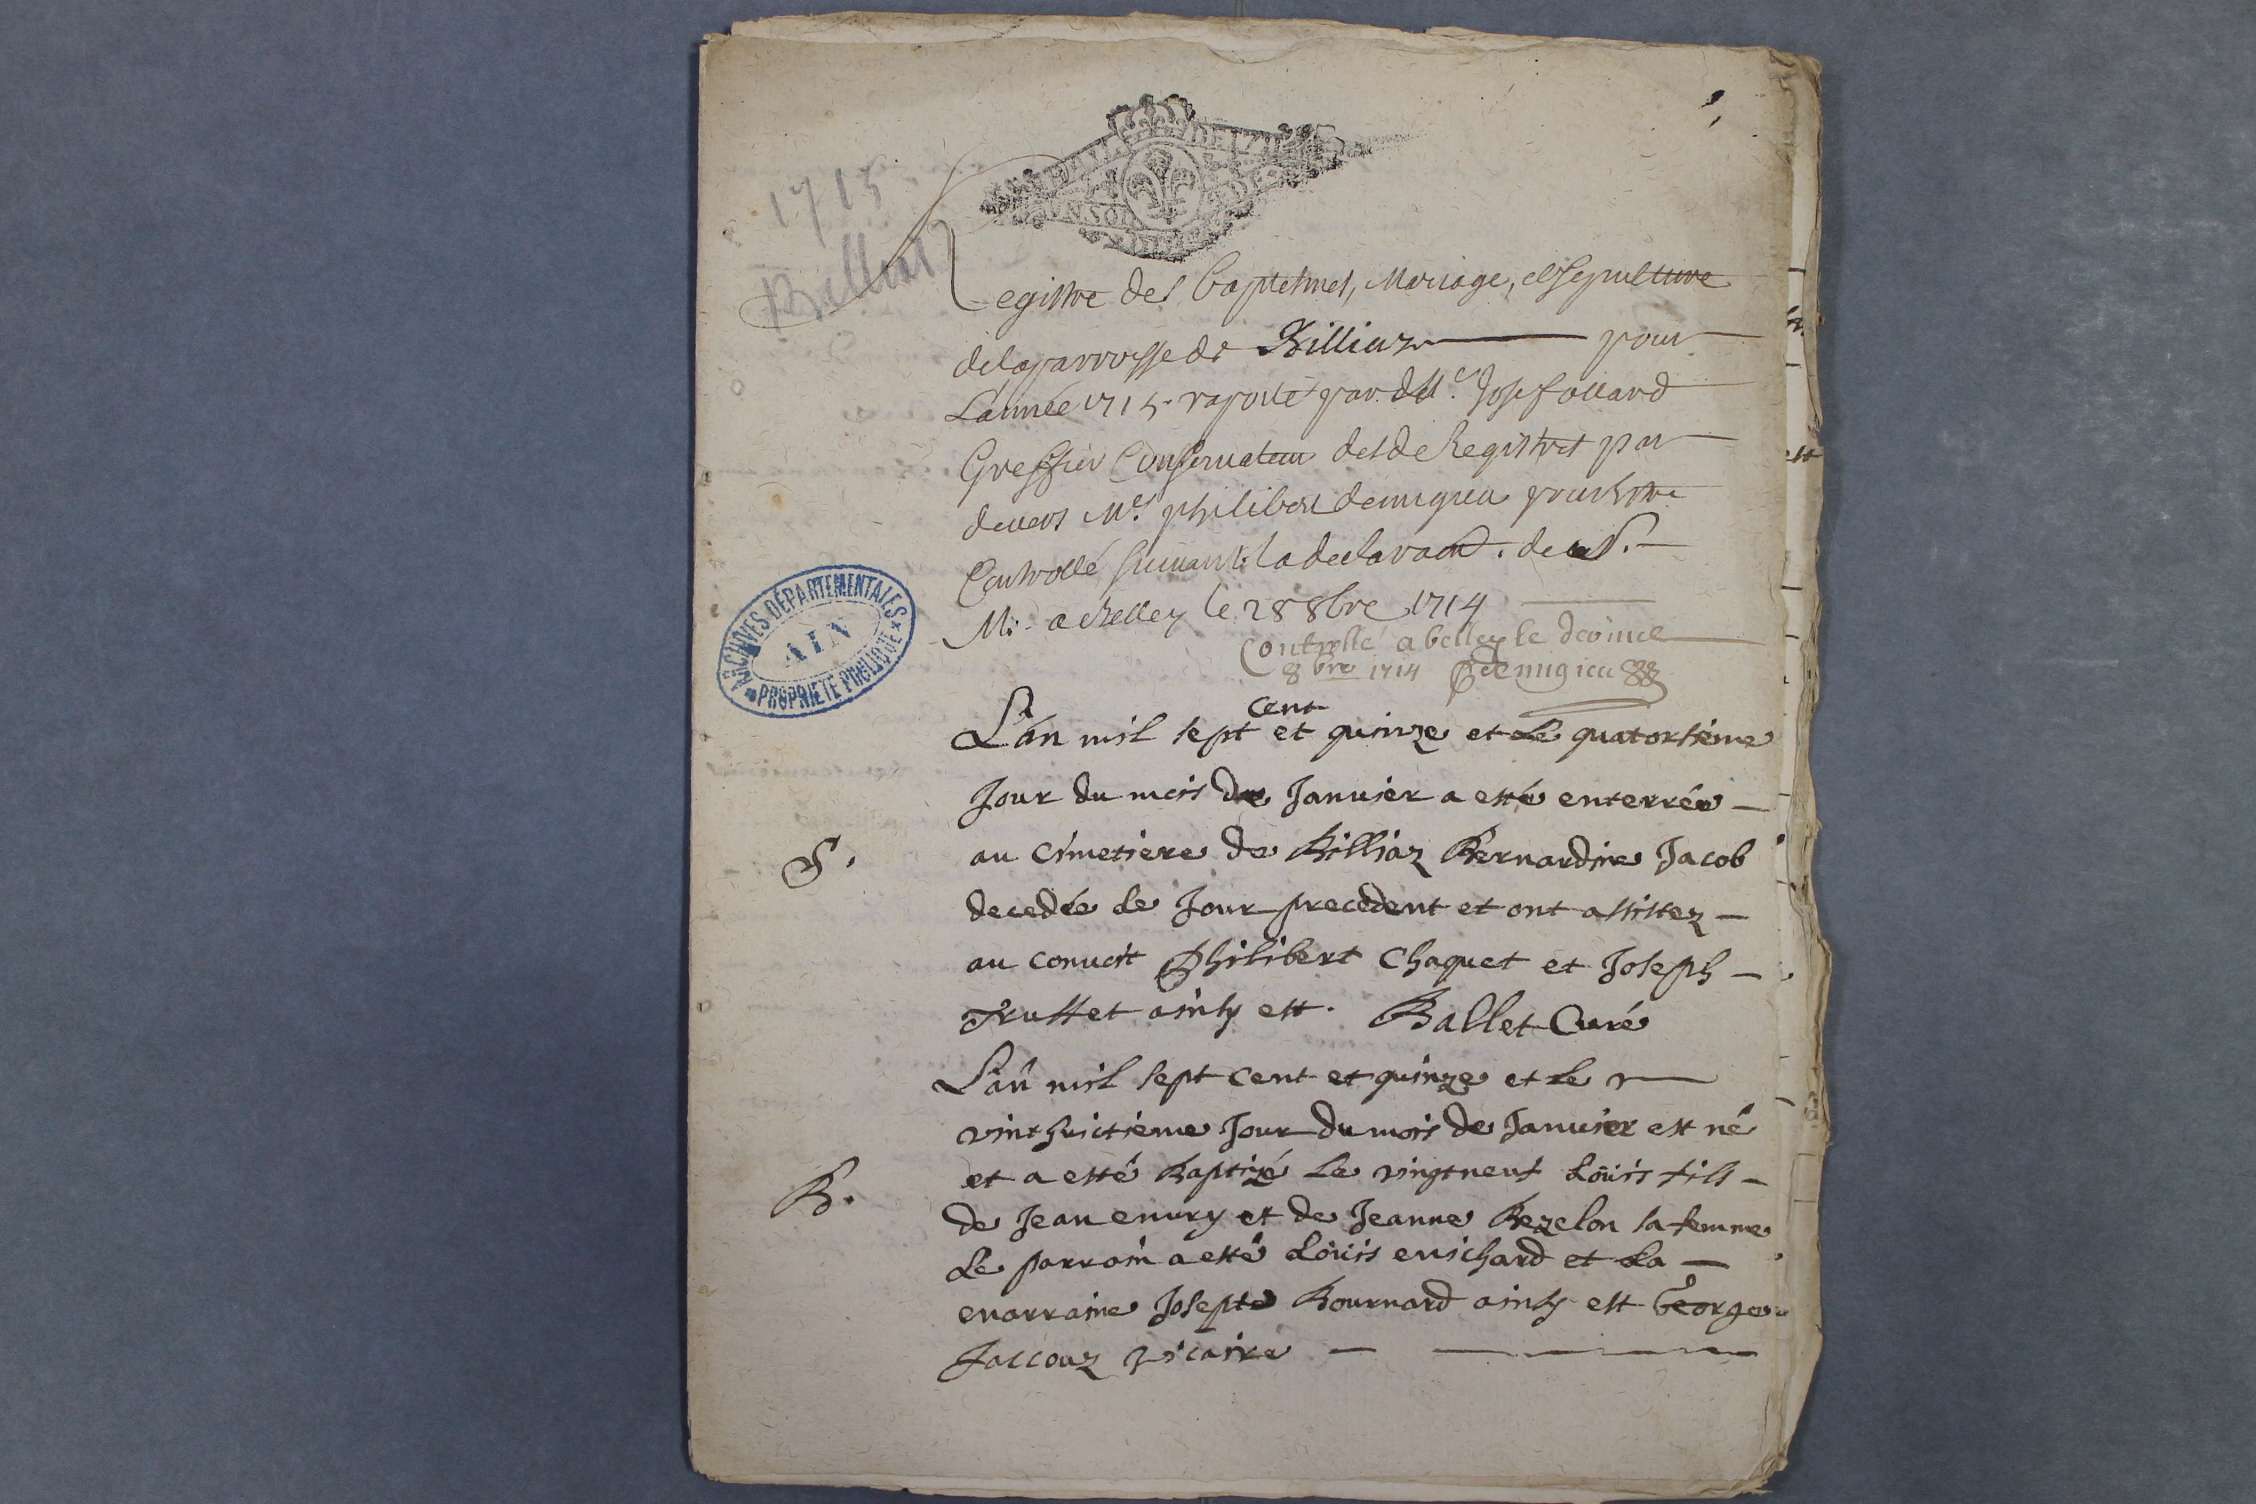 1715
Billiat
Registre des Baptesmes, Mariage, et Sepulture
de la parroisse de Billiaz pour
L'année 1715. raporté par. Me. Josef ollard
Greffier Conservateur desd. Registres par
devers Me. philibert demigieu pour estre
Controllé suivant la declaraon. de sa
M. a Belley le 28 8bre 1714
Controllé a belley le
8bre 1714 demigieu
ARCHIVES DÉPARTEMENTALES
AIN
PROPRIÉTÉ PUBLIQUE
cent
L'an mil sept et quinze et Le quatorsieme
Jour du mois de Janvier a esté enterrée
S.
au cimetiere de Billiaz Bernardine Jacob
decedée Le Jour precedent et ont assistez
au convoit Philibert Chaquet et Joseph
Trustet ainsy est. Ballet Curé
L'an mil sept cent et quinze et Le
vinthuictieme Jour du mois de Janvier est né
et a esté Baptizé Le vingtneuf Loüis fils
B.
de Jean emery et de Jeanne Bezelon sa femme
Le parrain a esté Loüis michard et La
marraine Josepte Bournard ainsy est George
Jaccouz vicaire